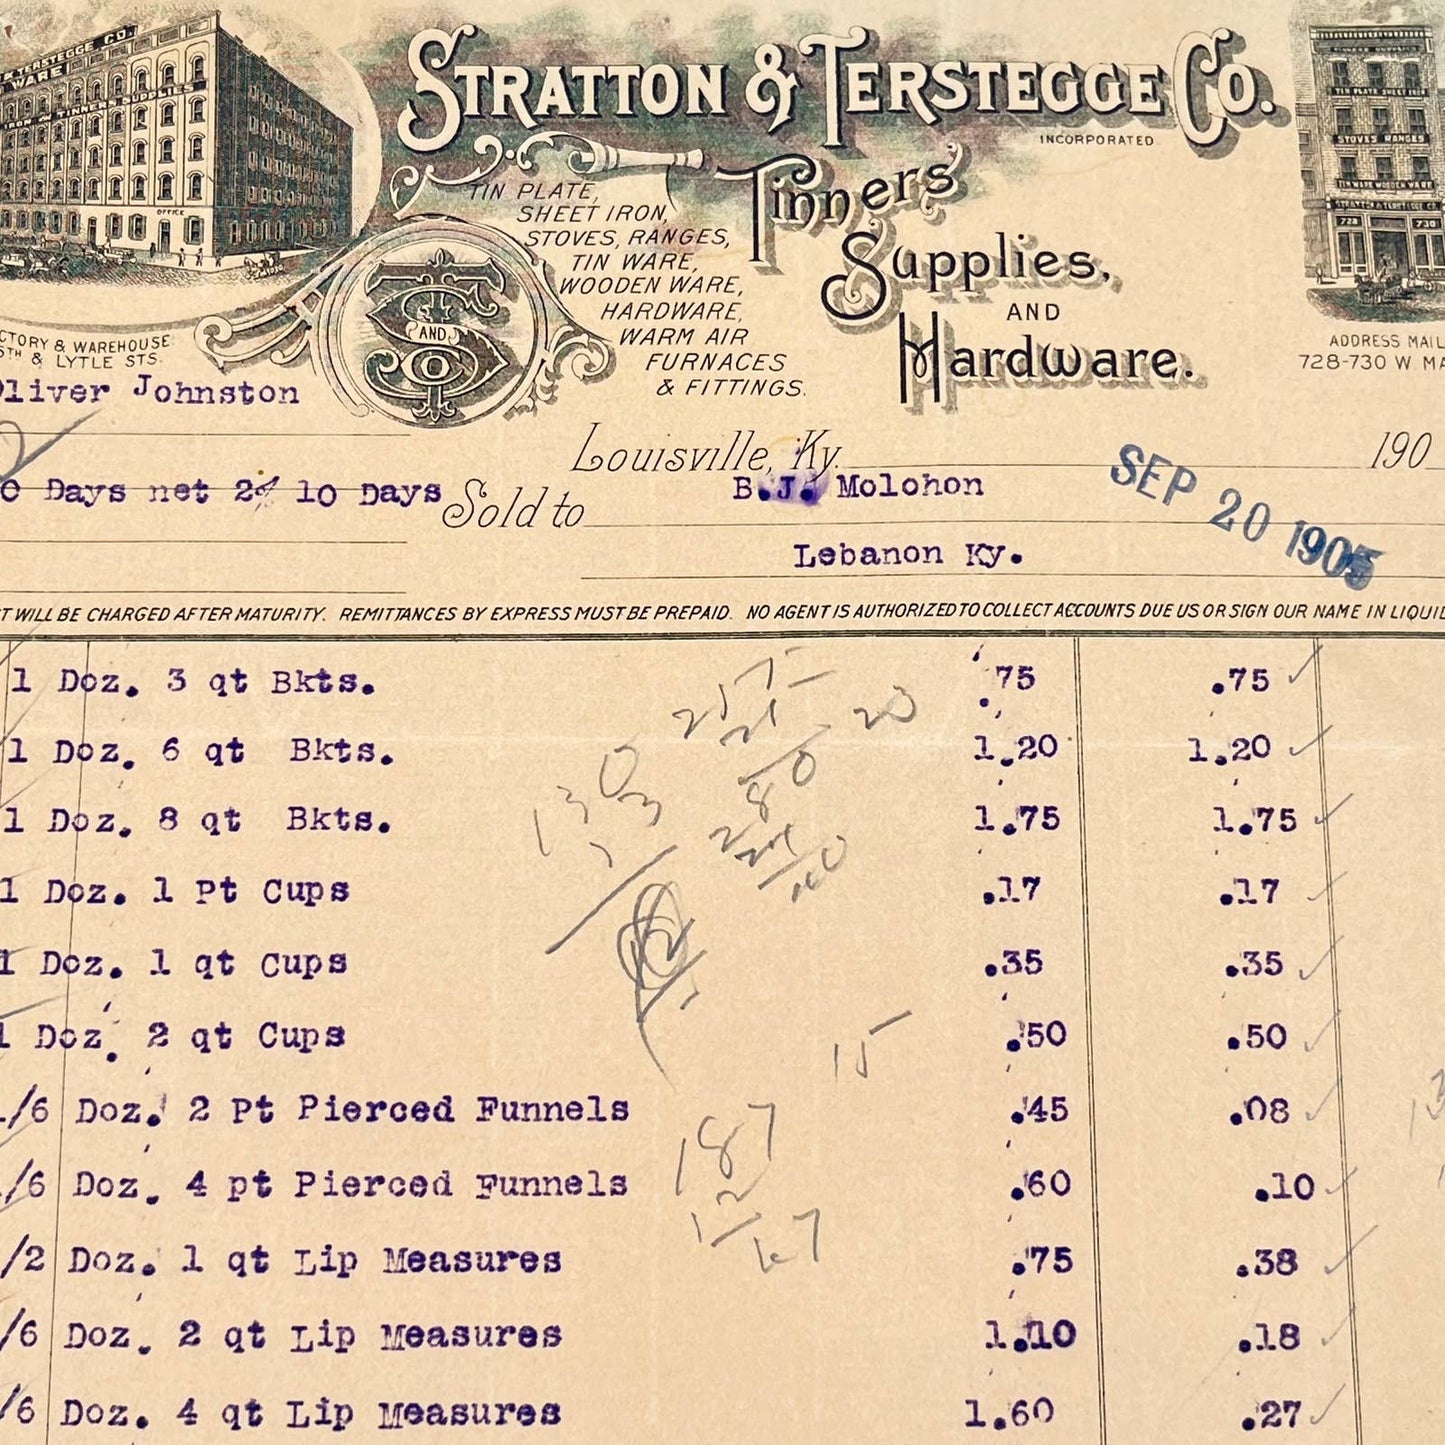 STRATTON & TERSTEGGE CO.
INCORPORATED
TERSTEGGE CO.
WARE
IRON & TINNERS SUPPLIES
OFFICE
TIN PLATE,
SHEET IRON,
STOVES, RANGES,
TIN WARE,
WOODEN WARE,
HARDWARE,
WARM AIR
FURNACES
& FITTINGS.
Tinners
Supplies,
AND
Hardware.
S AND T Co
TIN PLATE SHEET IRON
STOVES RANGES
TIN WARE WOODEN WARE
STRATTON & TERSTEGGE CO.
728 730
CTORY & WAREHOUSE
5TH & LYTLE STS.
ADDRESS MAIL
728-730 W MA
Oliver Johnston
Louisville, Ky. 190
0 Days net 2% 10 Days
Sold to B.J. Molohon
SEP 20 1905
Lebanon Ky.
T WILL BE CHARGED AFTER MATURITY. REMITTANCES BY EXPRESS MUST BE PREPAID. NO AGENT IS AUTHORIZED TO COLLECT ACCOUNTS DUE US OR SIGN OUR NAME IN LIQUID
1 Doz. 3 qt Bkts. .75 .75
1 Doz. 6 qt Bkts. 1.20 1.20
1 Doz. 8 qt Bkts. 1.75 1.75
1 Doz. 1 Pt Cups .17 .17
1 Doz. 1 qt Cups .35 .35
1 Doz. 2 qt Cups .50 .50
1/6 Doz. 2 Pt Pierced Funnels .45 .08
/6 Doz. 4 pt Pierced Funnels .60 .10
/2 Doz. 1 qt Lip Measures .75 .38
/6 Doz. 2 qt Lip Measures 1.10 .18
/6 Doz. 4 qt Lip Measures 1.60 .27
20
130
15
187
12